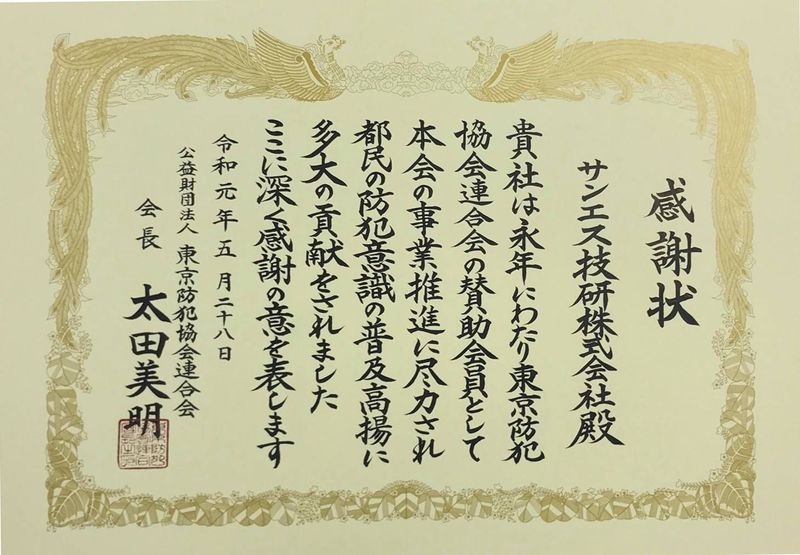 感謝状
サンエス技研株式会社殿
貴社は永年にわたり東京防犯
協会連合会の賛助会員として
本会の事業推進に尽力され
都民の防犯意識の普及高揚に
多大の貢献をされました
ここに深く感謝の意を表します
令和元年五月二十八日
公益財団法人 東京防犯協会連合会
会長 太田美明